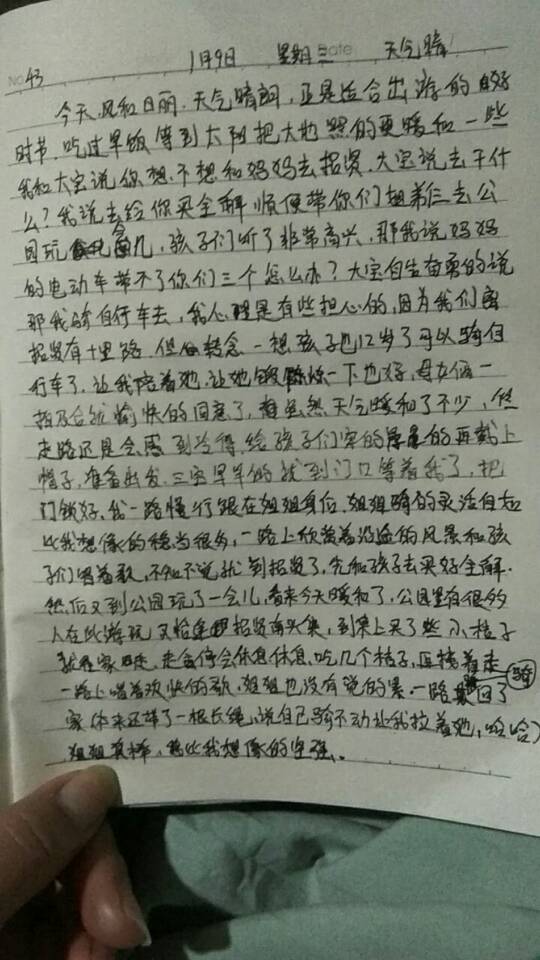 No. 43 1月9日 星期三 Date 天气晴
今天风和日丽,天气晴朗,正是适合出游的好
时节,吃过早饭等到太阳把大地照的更暖和一些
我和大宝说你想不想和妈妈去招贤,大宝说去干什
么?我说去给你买全解顺便带你们姐弟三去公
园玩会儿,孩子们听了非常高兴,那我说妈妈
的电动车带不了你们三个怎么办?大宝自告奋勇的说
那我骑自行车去,我心里是有些担心的,因为我们离
招贤有十里路,但转念一想孩子也12岁了可以骑自
行车了,让我陪着她,让她锻炼一下也好,母女俩一
拍及合就愉快的同意了,虽然天气暖和了不少,但
走路还是会感到冷得,给孩子们穿的厚厚的再戴上
帽子,准备出发,三宝早早的就到门口等着我了,把
门锁好,我一路慢行跟在姐姐身后,姐姐骑的灵活自如
比我想像的稳当很多,一路上欣赏着沿途的风景和孩
子们唱着歌,不知不觉就到招贤了,先和孩子去买好全解.
然后又到公园玩了一会儿,看来今天暖和了,公园里有很多
人在此游玩 又恰逢招贤 集,到集上买了些小桔子
就往家 走,走会停会休息休息,吃几个桔子,
一路上唱着欢快的歌,姐姐也没有说的累,一路骑回了
家 本来还带了一根长绳,说自己骑不动让我拉着她,哈哈
姐姐真棒, 比我想像的坚强.